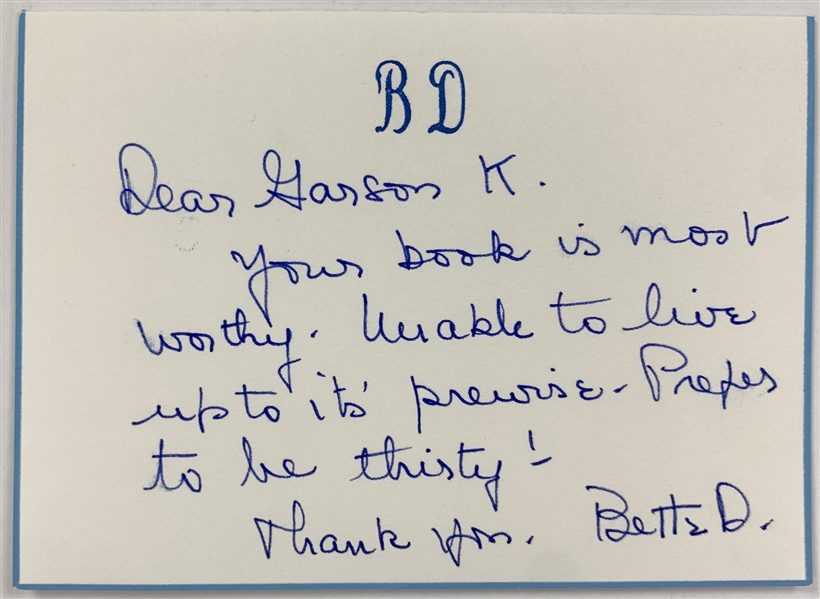 BD
Dear Garson K.
Your book is most
worthy. Unable to live
up to it's premise - Prefer
to be thirsty!
Thank you. Bette D.